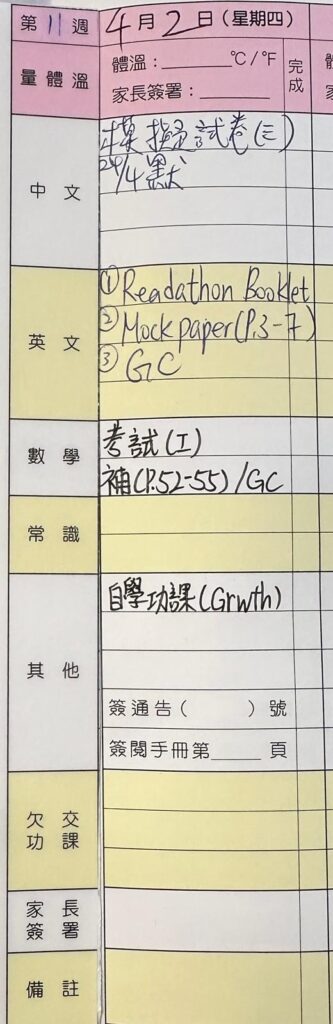 第 11 週
4月2日(星期四)
量體溫
體溫：______°C/°F
家長簽署：______
完成
中文
模擬試卷(三)
24/4 默
英文
①Readathon Booklet
②Mock paper(P.3-7)
③GC
數學
考試(I)
補(P.52-55)/GC
常識
其他
自學功課(Grwth)
簽通告( )號
簽閱手冊第____頁
欠交功課
家長簽署
備註